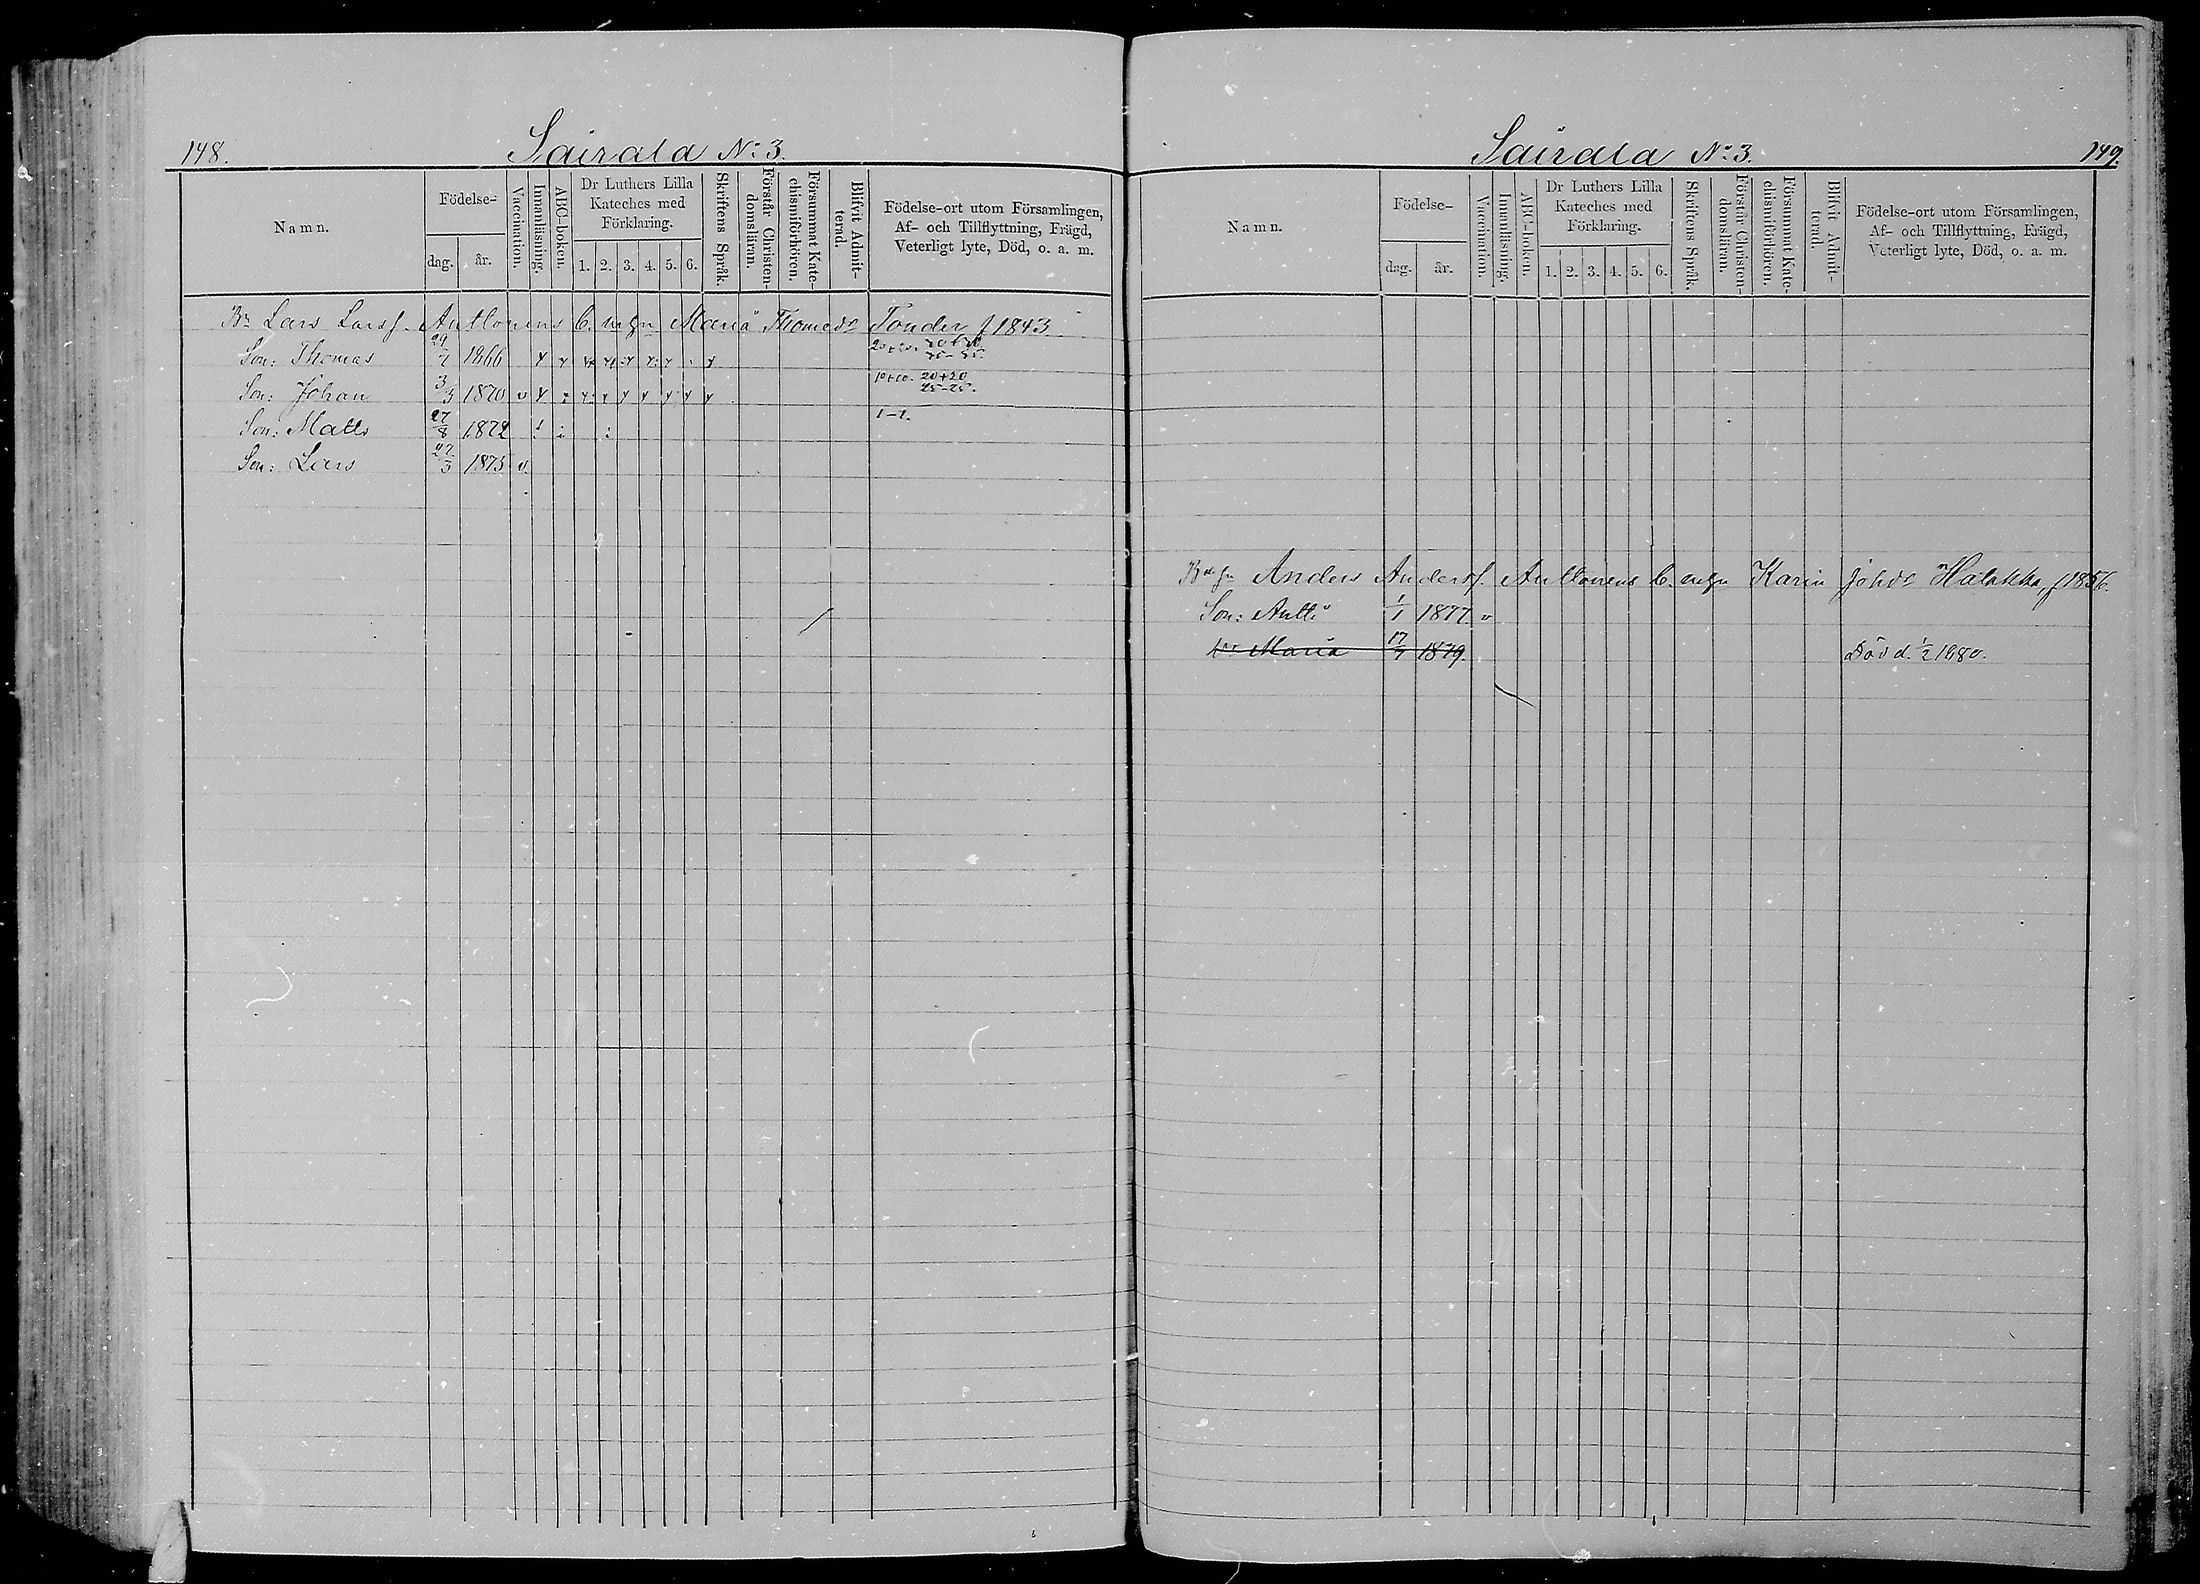 148.
Sairala No 3.
Namn.
Födelse-
dag.
år.
Vaccination.
Innanläsning.
ABC-boken.
Dr Luthers Lilla
Kateches med
Förklaring.
1. 2. 3. 4. 5. 6.
Skriftens Språk.
Förstår Christen-
domsläran.
Försummat Kate-
chismiförhören.
Blifvit Admit-
terad.
Födelse-ort utom Församlingen,
Af- och Tillflyttning, Frägd,
Veterligt lyte, Död, o. a. m.
Lars Larsf. Anttonens C. m hu Maria Thomasdr f 1843
Son: Thomas 1866
Son: Johan 3/3 1870 v 10+10. 20+20
25-25.
Son: Matts 27/8 1872 1-1.
Son: Lars 27/3 1873 v.
149.
Sairala No 3.
Namn.
Födelse-
dag.
år.
Vaccination.
Innanläsning.
ABC-boken.
Dr Luthers Lilla
Kateches med
Förklaring.
1. 2. 3. 4. 5. 6.
Skriftens Språk.
Förstår Christen-
domsläran.
Försummat Kate-
chismiförhören.
Blifvit Admit-
terad.
Födelse-ort utom Församlingen,
Af- och Tillflyttning, Frägd,
Veterligt lyte, Död, o. a. m.
Anders Andersf. Anttonens Karin Johdr f 1856.
Son: Antti 1/1 1877. v
Maria 17/7 1879. Död d. 1/2 1880.